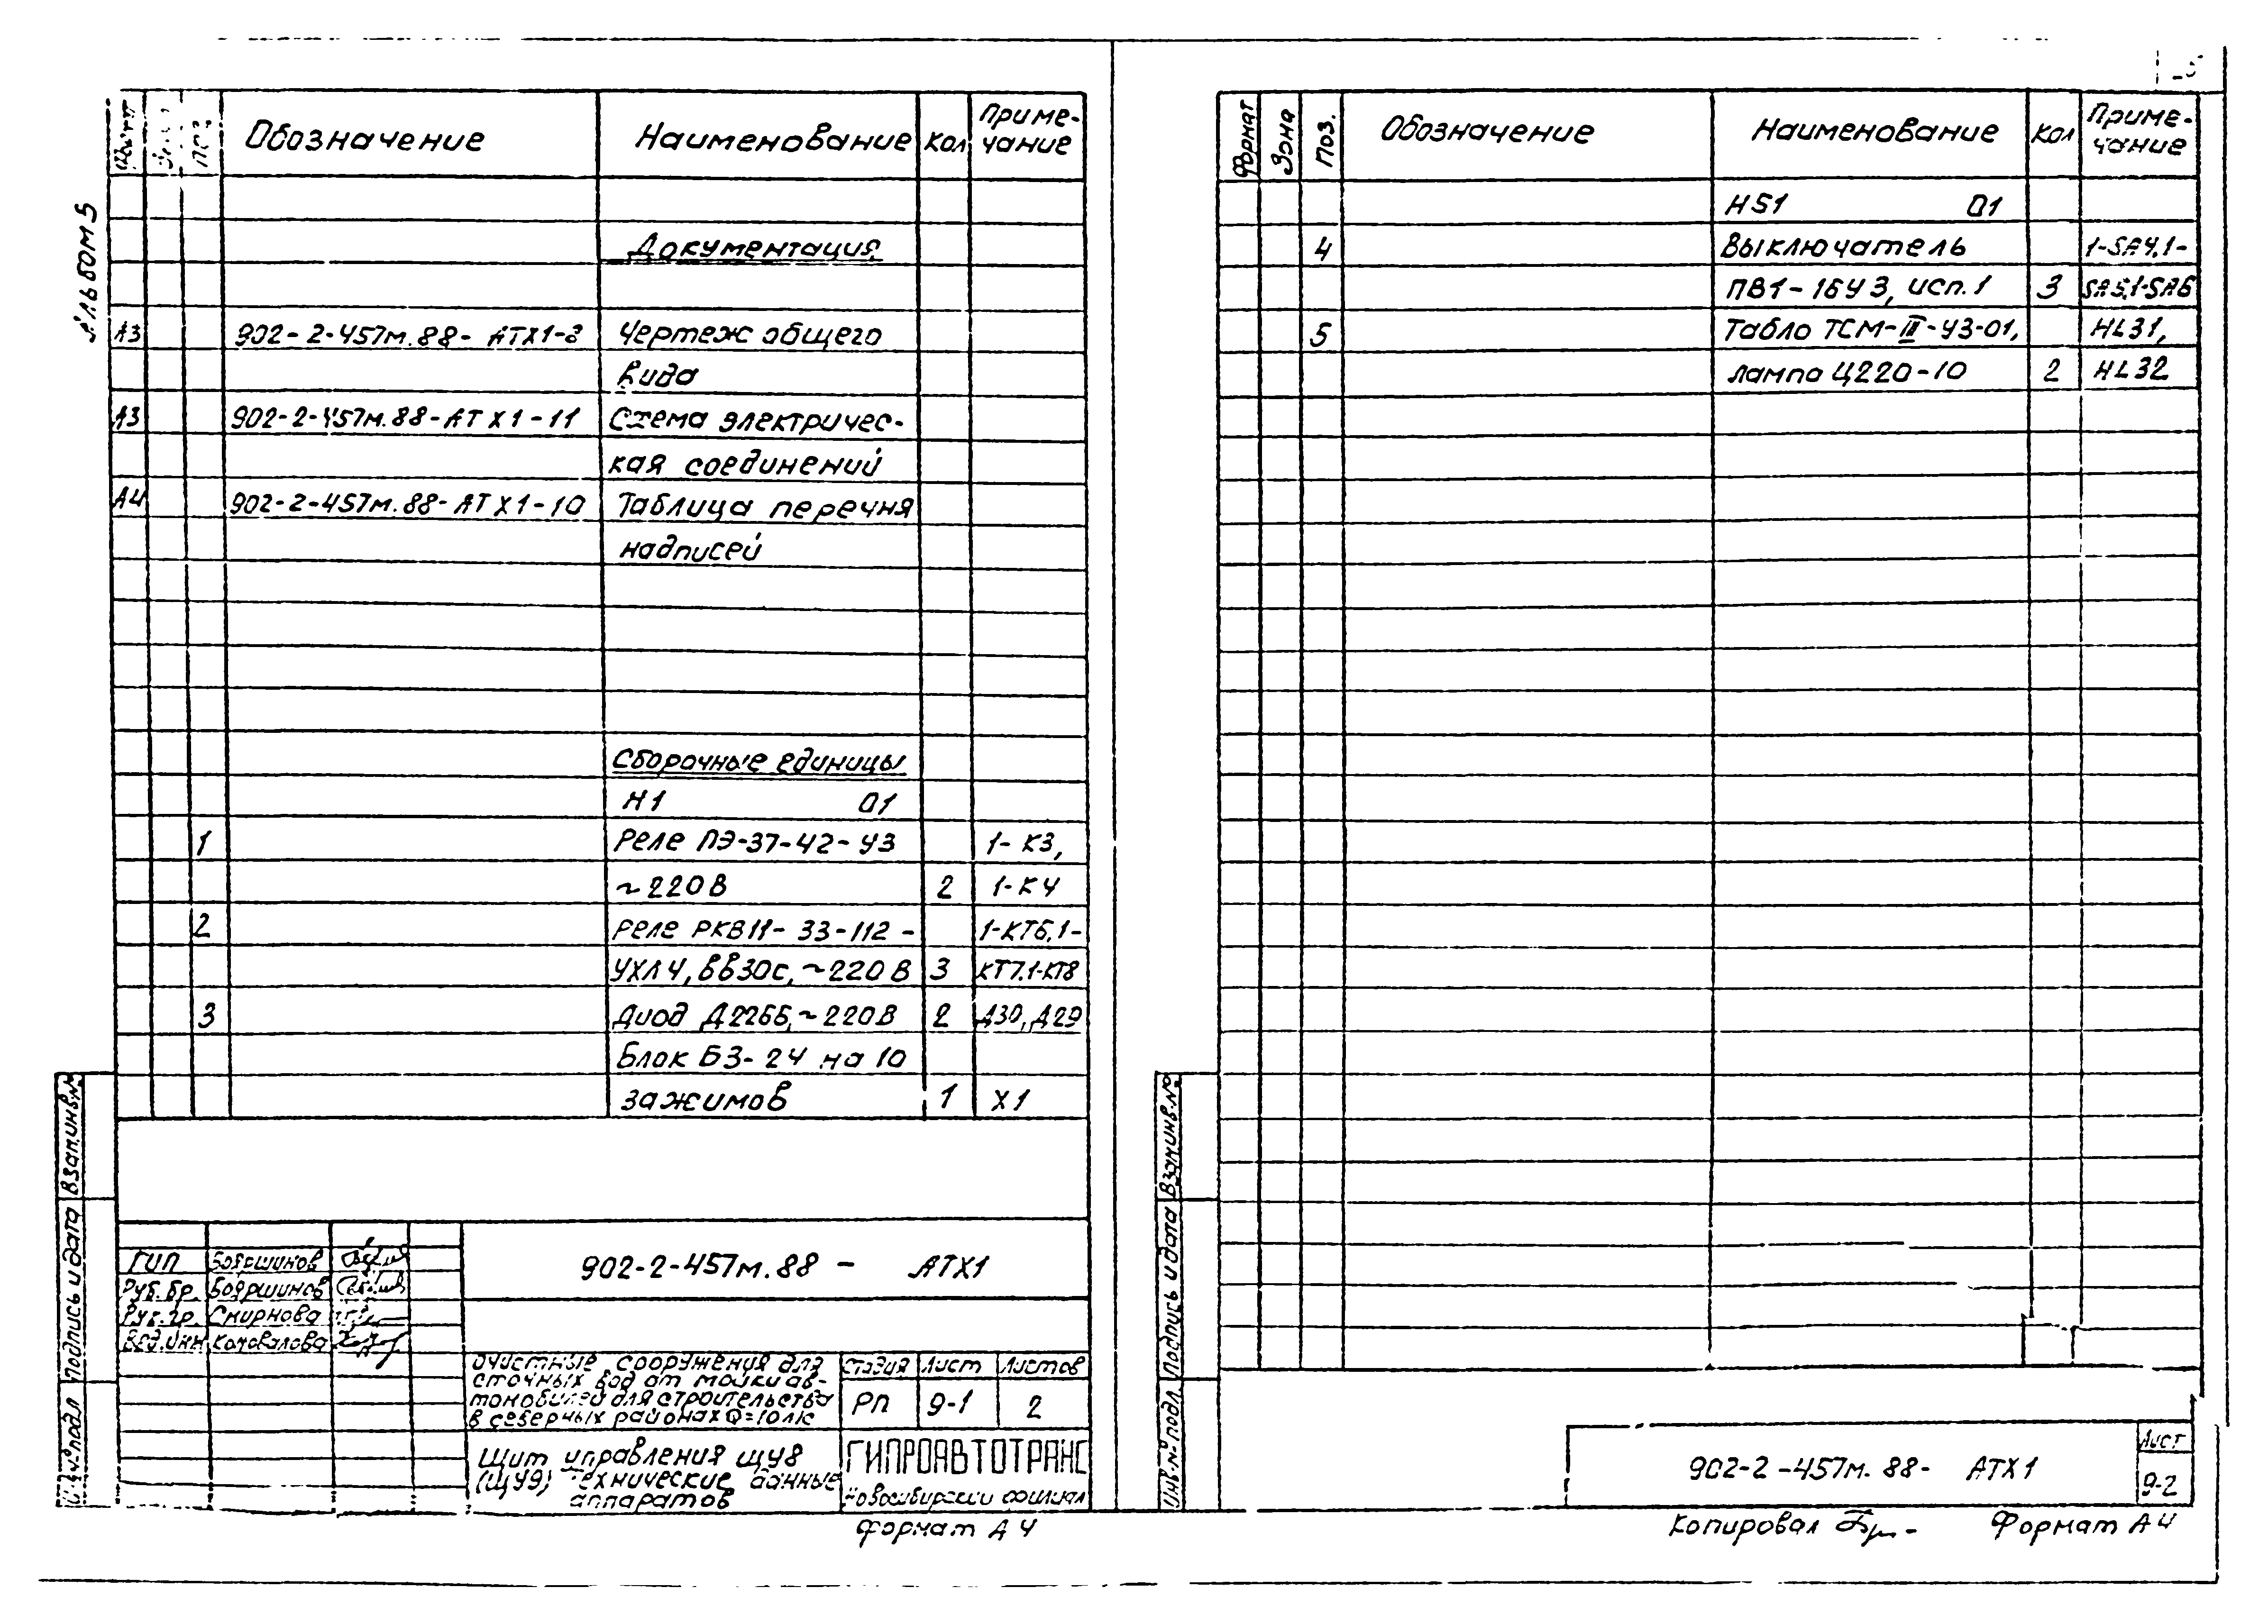 Альбом 5
Обозначение Наименование Кол Приме-
чание
Документация
А3 902-2-457м.88- АТХ1-8 Чертеж общего
вида
А3 902-2-457м.88-АТХ1-11 Схема электричес-
кая соединений
А4 902-2-457м.88-АТХ1-10 Таблица перечня
надписей
Сборочные единицы
Н1 01
1 Реле ПЭ-37-42-У3 1-К3,
~220В 2 1-К4
2 Реле РКВ11-33-112- 1-КТ6,1-
УХЛ4, ВВ30с, ~220В 3 КТ7,1-КТ8
3 Диод Д226Б, ~220В 2 Д30, Д29
Блок БЗ-24 на 10
зажимов 1 Х1
Взам.инв.№
Подпись и дата
Инв.№подл
902-2-457м.88- АТХ1
ГИП Бояршинов
Рук.бр. Бояршинов
Рук.гр. Смирнова
Вед.инж Коновалова
Очистные сооружения для
сточных вод от мойки ав-
томобилей для строительства
в северных районах Q=10л/с
Стадия Лист Листов
РП 9-1 2
Щит управления ЩУ8
(ЩУ9) Технические данные
аппаратов
ГИПРОАВТОТРАНС
Новосибирский филиал
Формат А4
Формат Зона Поз. Обозначение Наименование Кол Приме-
чание
Н51 01
4 Выключатель 1-SA4,1-
ПВ1-16У3, исп.1 3 SA5,1-SA6
5 Табло ТСМ-III-У3-01, HL31,
лампа Ц220-10 2 HL32
Взам.инв.№
Подпись и дата
Инв.№ подл.
902-2-457м.88- АТХ1
Лист
9-2
Копировал Формат А4